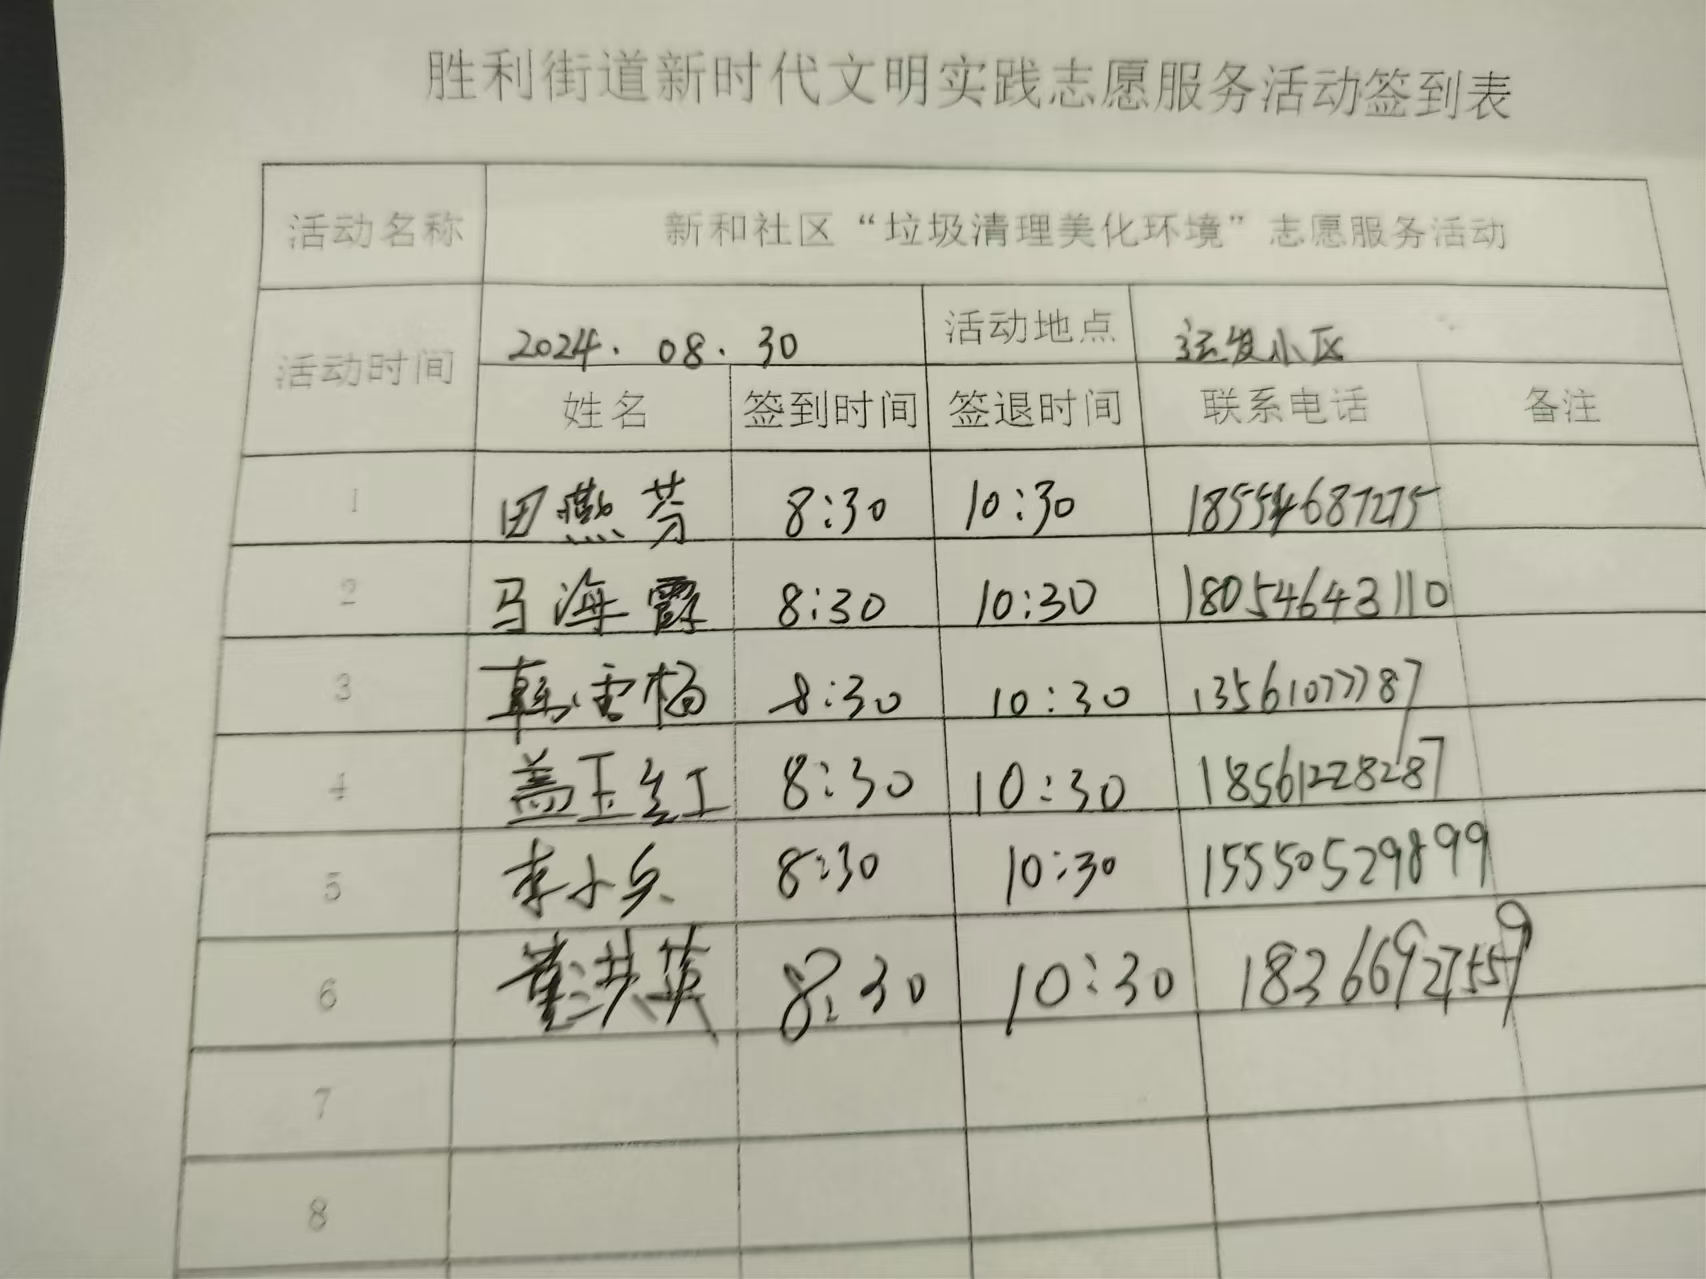 胜利街道新时代文明实践志愿服务活动签到表
活动名称 新和社区“垃圾清理美化环境”志愿服务活动
活动时间 2024.08.30 活动地点 运发小区
姓名 签到时间 签退时间 联系电话 备注
1 田燕芳 8:30 10:30 18554687275
2 马海霞 8:30 10:30 18054643110
3 韩雪梅 8:30 10:30 13561077787
4 盖玉红 8:30 10:30 18561228287
5 李小兵 8:30 10:30 15550529899
6 董洪英 8:30 10:30 18366927559
7
8